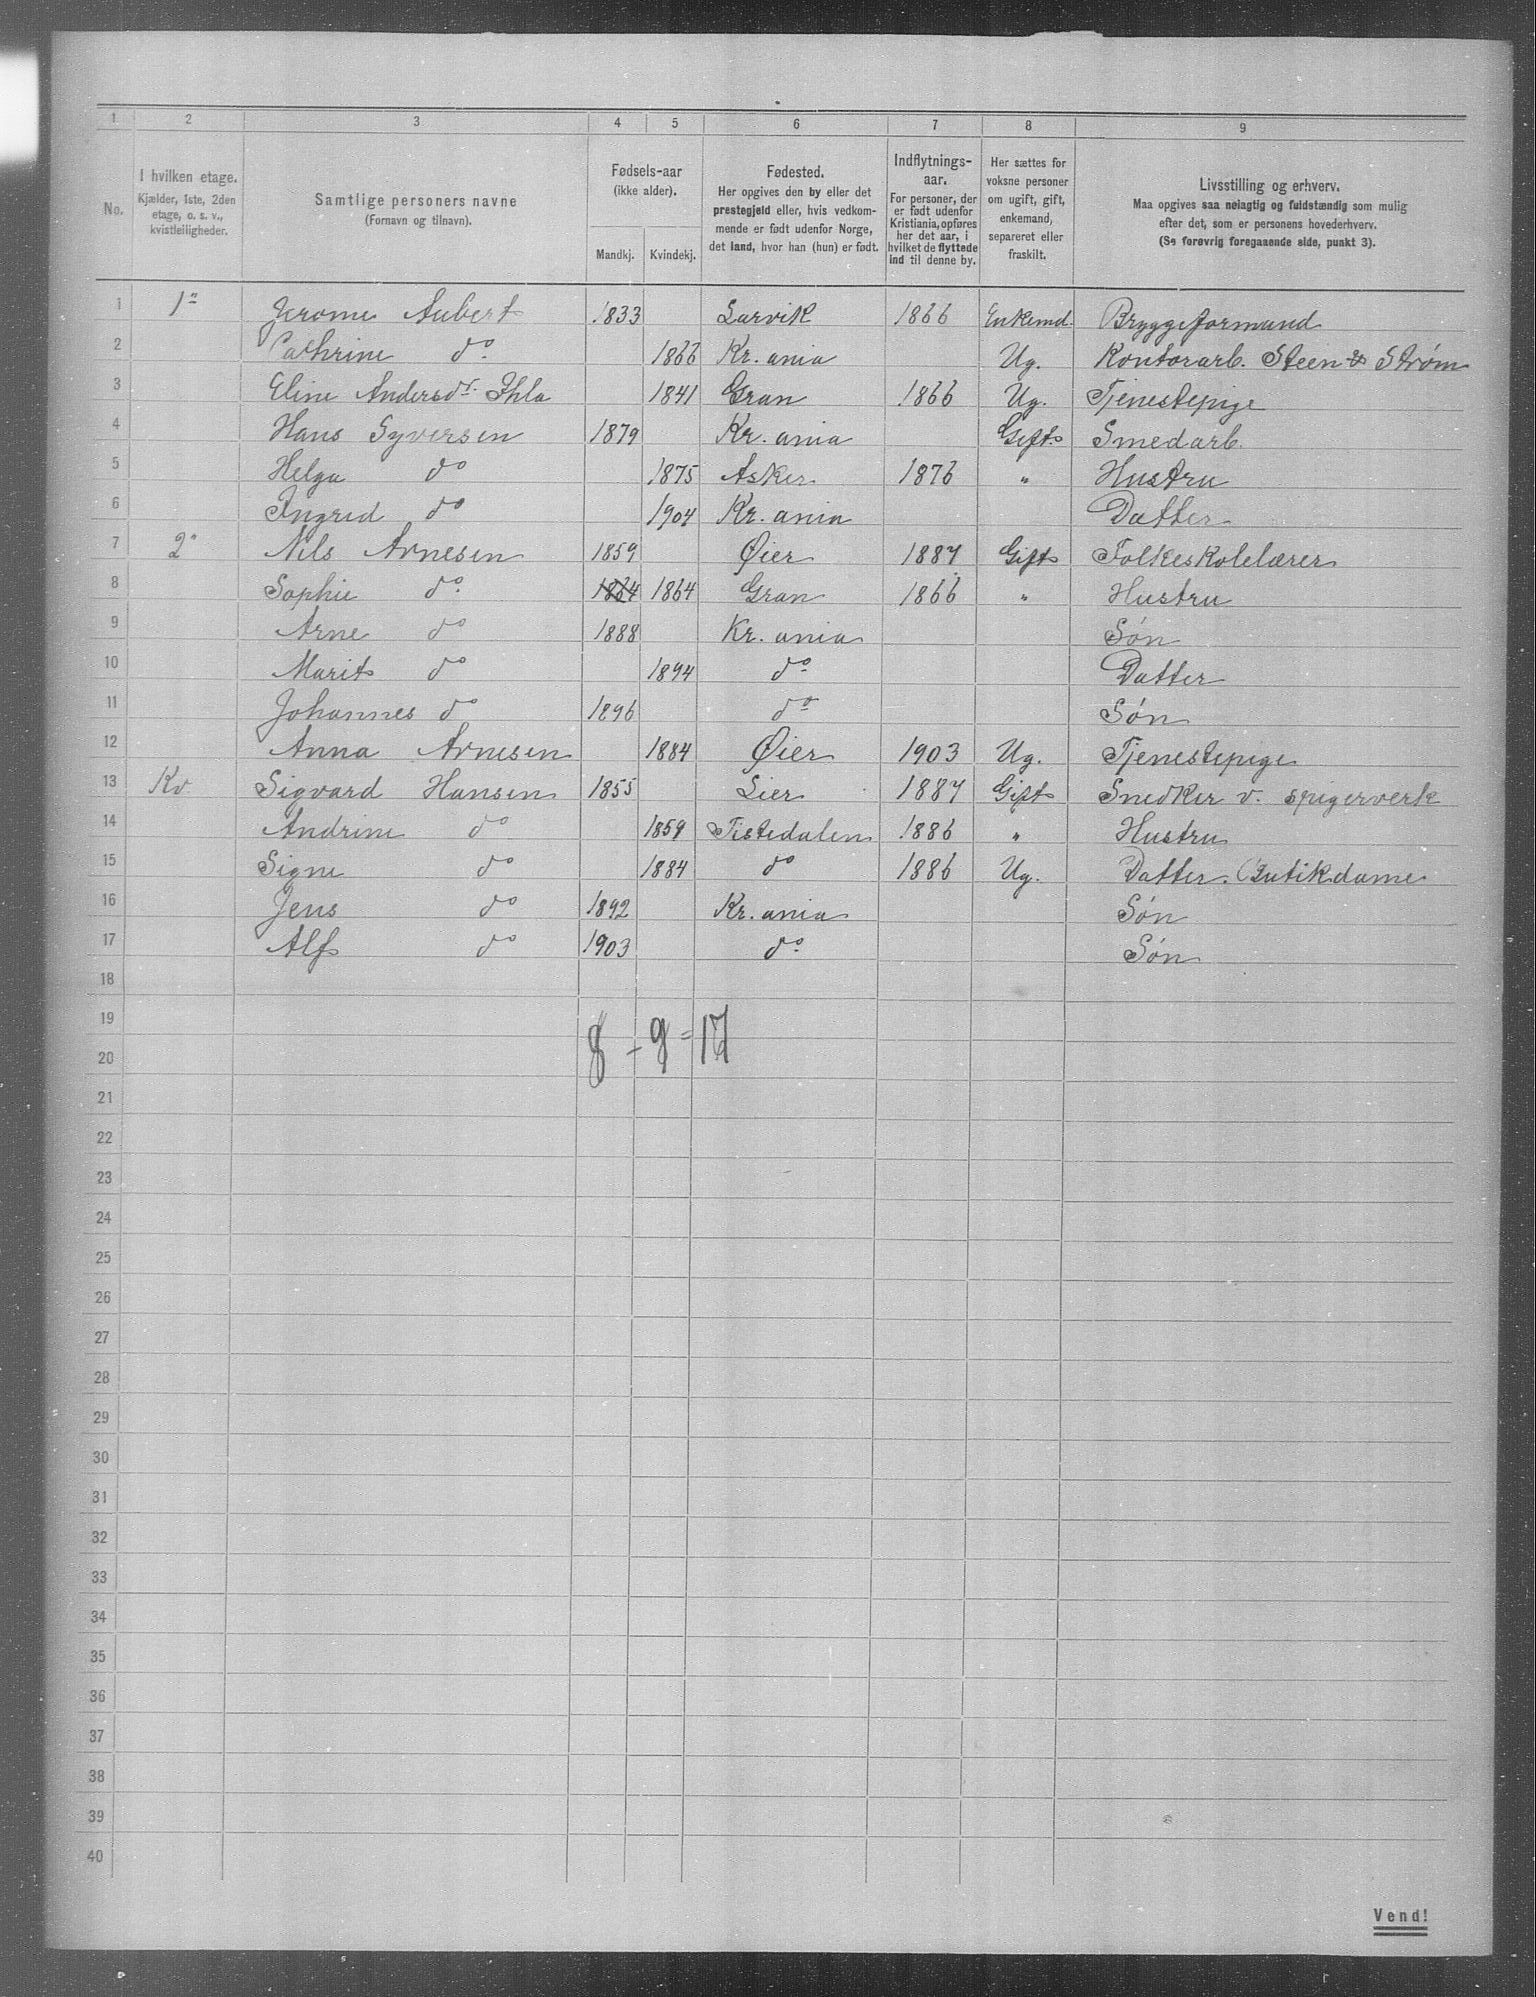 1 2 3 4 5 6 7 8 9
No.
I hvilken etage.
Kjælder, 1ste, 2den
etage, o. s. v.,
kvistleiligheder.
Samtlige personers navne
(Fornavn og tilnavn).
Fødsels-aar
(ikke alder).
Mandkj. Kvindekj.
Fødested.
Her opgives den by eller det
prestegjeld eller, hvis vedkom-
mende er født udenfor Norge,
det land, hvor han (hun) er født.
Indflytnings-
aar.
For personer, der
er født udenfor
Kristiania, opføres
her det aar, i
hvilket de flyttede
ind til denne by.
Her sættes for
voksne personer
om ugift, gift,
enkemand,
separeret eller
fraskilt.
Livsstilling og erhverv.
Maa opgives saa nøiagtig og fuldstændig som mulig
efter det, som er personens hovederhverv.
(Se forøvrig foregaaende side, punkt 3).
1 1" Jerome Aubert 1833 Larvik 1866 Enkemd. Bryggeformand
2 Cathrine do. 1866 Kr.ania Ug. Kontorarb. Steen & Strøm
3 Eline Andersdr. Ihla 1841 Gran 1866 Ug. Tjenestepige
4 Hans Syversen 1879 Kr.ania Gift. Smedarb.
5 Helga do 1875 Asker 1876 " Hustru
6 Ingrid do 1904 Kr.ania Datter
7 2" Nils Arnesen 1859 Øier 1887 Gift Folkeskolelærer
8 Sophie do. 1864 1864 Gran 1866 " Hustru
9 Arne do 1888 Kr.ania Søn
10 Marit do 1894 do. Datter
11 Johannes do 1896 do Søn
12 Anna Arnesen 1884 Øier 1903 Ug. Tjenestepige
13 Kv. Sigvard Hansen 1855 Lier 1887 Gift Snedker v. spigerverk
14 Andrine do 1859 Tistedalen 1886 " Hustru
15 Signe do 1884 do 1886 Ug. Datter. Butikdame
16 Jens do 1892 Kr.ania Søn
17 Alf do 1903 do. Søn
18
19
8 - 9 = 17
20
21
22
23
24
25
26
27
28
29
30
31
32
33
34
35
36
37
38
39
40
Vend!